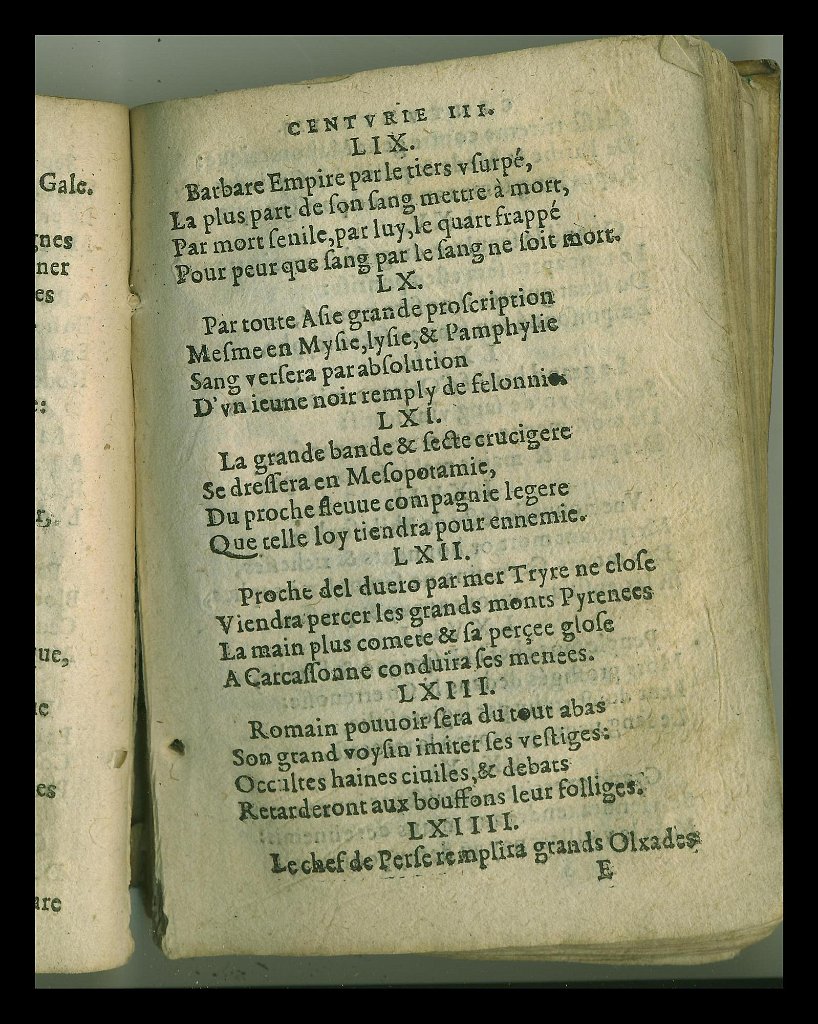 Gale.
gnes
ner
es
e:
r,
ue,
ue
es
are
CENTVRIE III.
LIX.
Barbare Empire par le tiers vſurpé,
La plus part de ſon ſang mettre à mort,
Par mort ſenile, par luy, le quart frappé
Pour peur que ſang par le ſang ne ſoit mort.
LX.
Par toute Aſie grande proſcription
Meſme en Myſie, lyſie, & Pamphylie
Sang verſera par abſolution
D'vn ieune noir remply de felonnie.
LXI.
La grande bande & ſecte crucigere
Se dreſſera en Meſopotamie,
Du proche fleuue compagnie legere
Que telle loy tiendra pour ennemie.
LXII.
Proche del duero par mer Tryre ne cloſe
Viendra percer les grands monts Pyrenees
La main plus comete & ſa perçee gloſe
A Carcaſſonne conduira ſes menees.
LXIII.
Romain pouuoir ſera du tout abas
Son grand voyſin imiter ſes veſtiges:
Occultes haines ciuiles, & debats
Retarderont aux bouffons leur folliges.
LXIIII.
Le chef de Perſe remplira grands Olxades
E